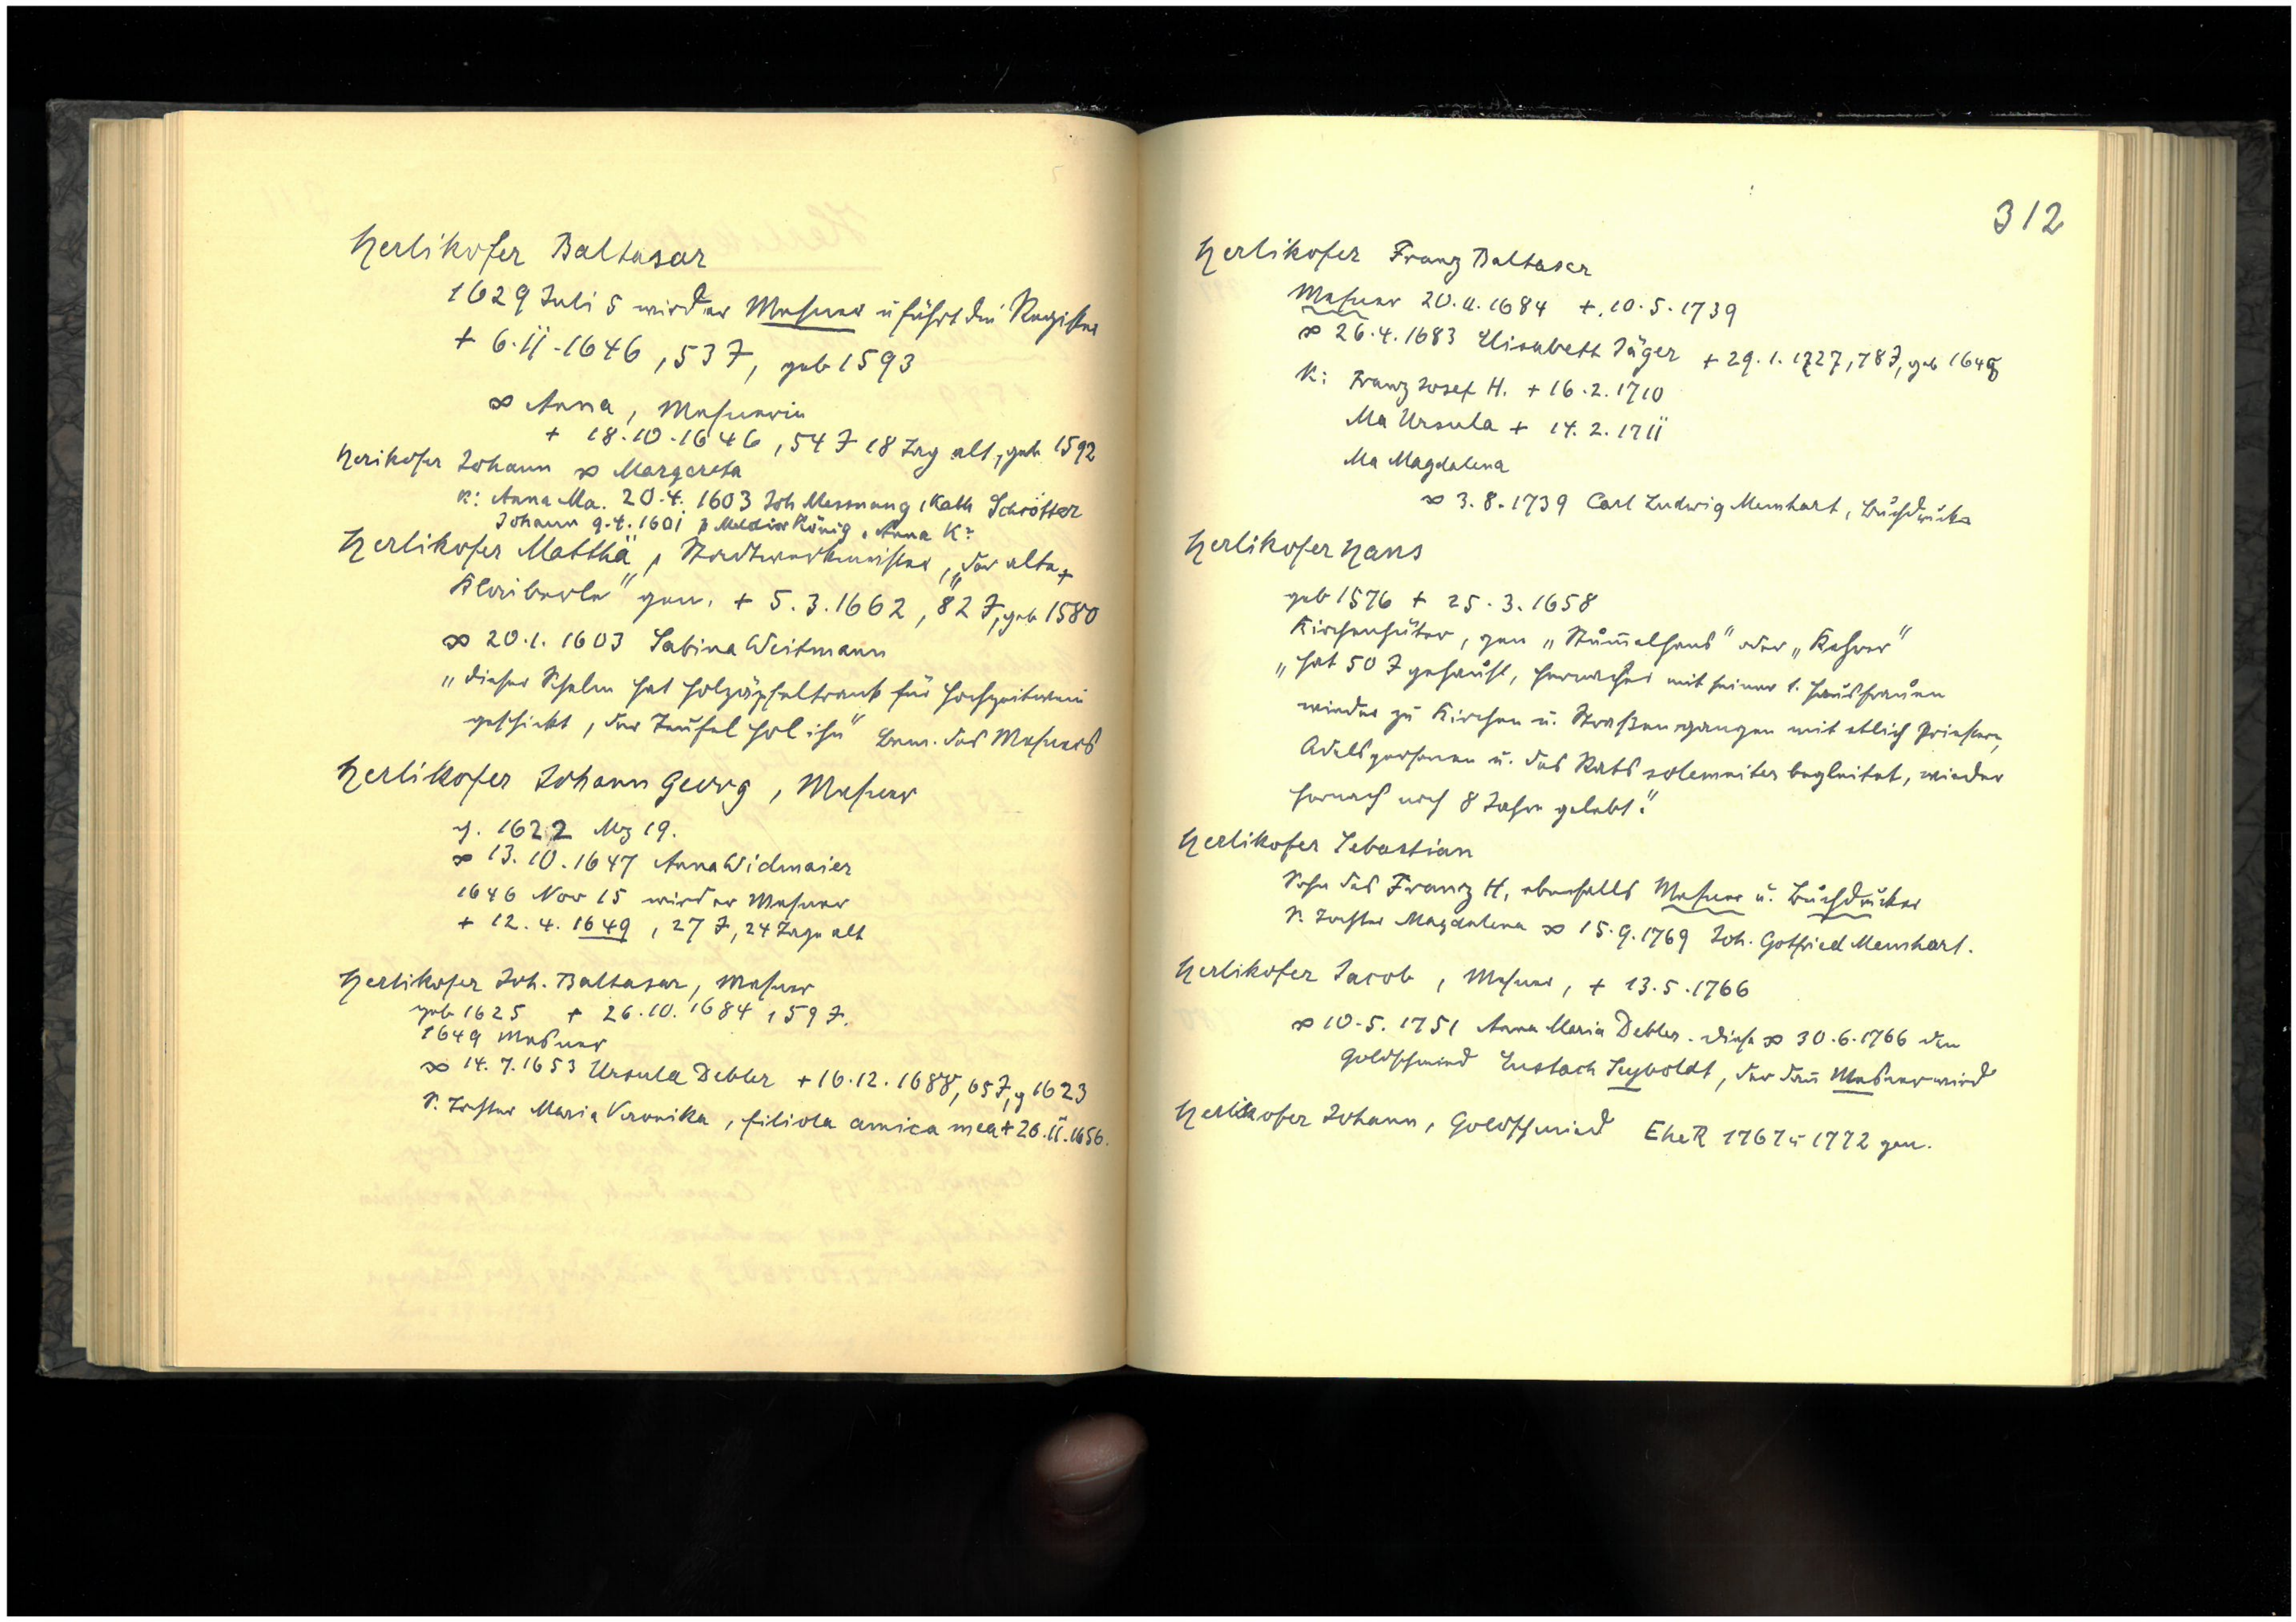 Herlikofer Baltasar
1629 Juli 5 wird er Mesner u führt die Register
+ 6.11.1646, 53 J, geb 1593
∞ Anna, Mesnerin
+ 18.10.1646, 54 J 18 Tag alt, geb 1592
Herikofer Johann ∞ Margareta
K: Anna Ma. 20.4. 1603 Joh Messnang, Kath Schrötter
Johann 9.4.1601 p Melchior König, Anna K:
Herlikofer Matthä, Stadtwerkmeister, „der alte
" gen. + 5.3.1662, 82 J, geb 1580
∞ 20.1.1603 Sabina Weitmann
„dieser Schelm hat Holzäpfeltrank für Hochzeitwein
geschickt, der Teufel hol ihn" Bem. des Mesners
Herlikofer Johann Georg, Mesner
g. 1622 Mz 19.
∞ 13.10.1647 Anna Widmaier
1646 Nov 15 wird er Mesner
+ 12.4.1649, 27 J, 24 Tage alt
Herlikofer Joh. Baltasar, Mesner
geb 1625 + 26.10.1684, 59 J.
1649 Mesner
∞ 14.7.1653 Ursula Debler + 16.12.1688, 65 J, g 1623
S. Tochter Maria Veronika, filiola amica mea + 26.11.1656.
312
Herlikofer Franz Baltasar
Mesner 20.11.1684 +. 10.5.1739
∞ 26.4.1683 Elisabeth Jäger + 29.1.1727, 78 J, geb 1649
K: Franz Josef H. + 16.2.1710
Ma Ursula + 14.2.1711
Ma Magdalena
∞ 3.8.1739 Carl Ludwig Memhart, Buchdrucker
Herlikofer Hans
geb 1576 + 25.3.1658
Kirchenhüter, gen „Stumelhans" oder „Kehrer"
„hat 50 J gehaust, hernacher mit seiner 1. Hausfrauen
wieder zu Kirchen u. Straßen gangen mit etlich Priestern,
Adelspersonen u. des Rats solemniter begleitet, wieder
hernach noch 8 Jahre gelebt."
Herlikofer Sebastian
Sohn des Franz H, ebenfalls Mesner u. Buchdrucker
S. Tochter Magdalena ∞ 15.9.1769 Joh. Gotfried Memhart.
Herlikofer Jacob, Mesner, + 13.5.1766
∞ 10.5.1751 Anna Maria Debler. Diese ∞ 30.6.1766 den
Goldschmied Eustach Seyboldt, der dan Mesner wird
Herlikofer Johann, Goldschmied EheR 1767 u 1772 gen.